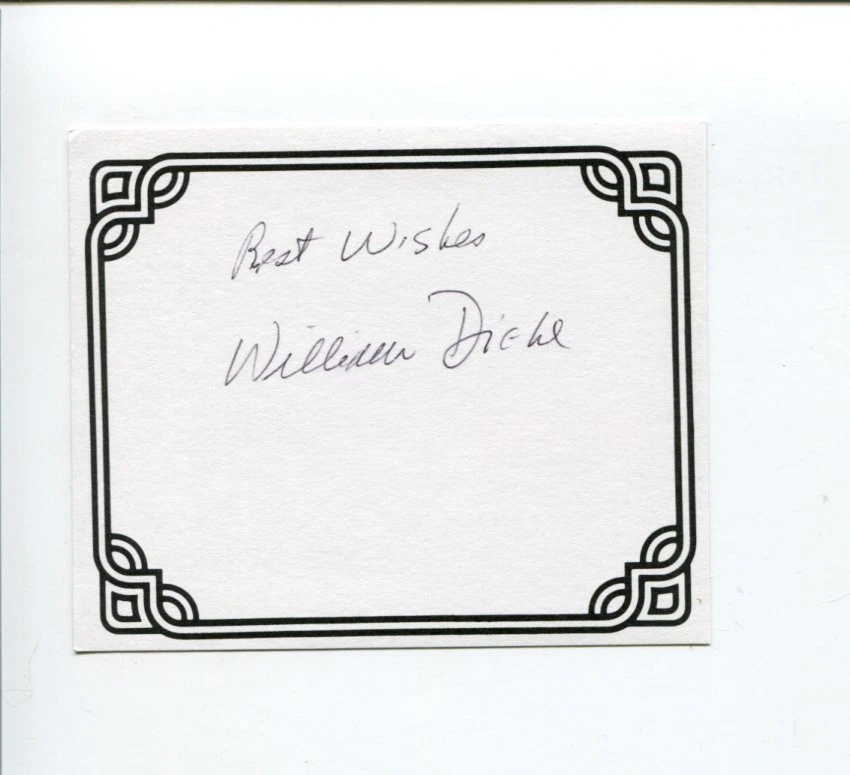 Best Wishes
William Diehl